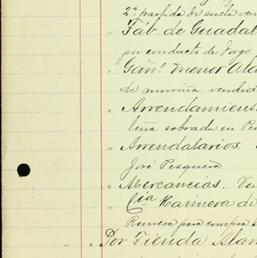 2ª partida de suela ven
" Fáb. de Guadal
por conducto de Jorge
" Ganº menor Ala
de morriña vendid
" Arrendamient
leña sobrado en Pe
" Arrendatarios.
José Pesqueira
" Mercancias. Ve
" Cía Rannera de
para compra
" Por Tienda Alam